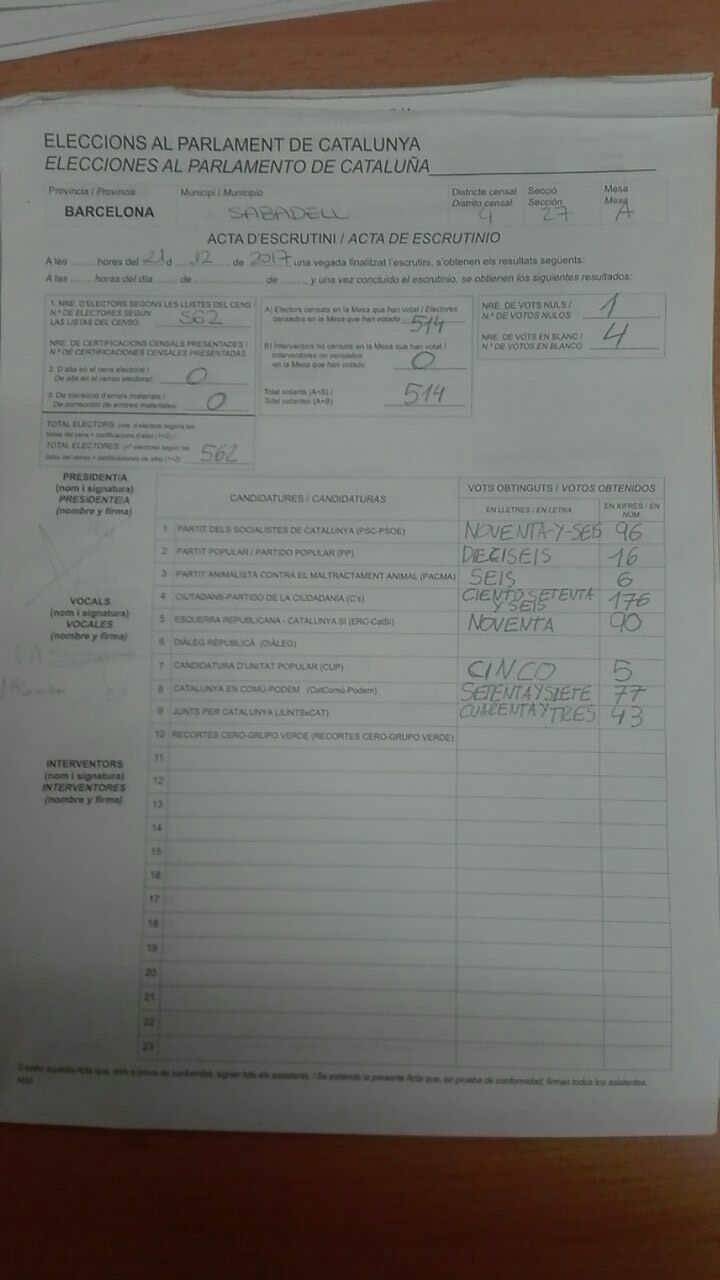 ELECCIONS AL PARLAMENT DE CATALUNYA
ELECCIONES AL PARLAMENTO DE CATALUÑA
Província / Provincia Municipi / Municipio Districte censal Secció Mesa
Distrito censal Sección Mesa
BARCELONA SABADELL 4 27 A
ACTA D'ESCRUTINI / ACTA DE ESCRUTINIO
A les ........ hores del 21 d ..... 12 ..... de 2017, una vegada finalitzat l'escrutini, s'obtenen els resultats següents:
A las ........ horas del día ........ de ........ de ........, y una vez concluido el escrutinio, se obtienen los siguientes resultados:
1. NRE. D'ELECTORS SEGONS LES LLISTES DEL CENS /
N.º DE ELECTORES SEGÚN
LAS LISTAS DEL CENSO 562
NRE. DE CERTIFICACIONS CENSALS PRESENTADES /
N.º DE CERTIFICACIONES CENSALES PRESENTADAS
2. D'alta en el cens electoral /
De alta en el censo electoral: 0
3. De correcció d'errors materials /
De corrección de errores materiales: 0
TOTAL ELECTORS: (nre. d'electors segons les
llistes del cens + certificacions d'alta) (1+2) /
TOTAL ELECTORES: (nº electores según las
listas del censo + certificaciones de alta) (1+2) 562
A) Electors censats en la Mesa que han votat / Electores
censados en la Mesa que han votado 514
B) Interventors no censats en la Mesa que han votat /
Interventores no censados
en la Mesa que han votado 0
Total votants (A+B) /
Total votantes (A+B) 514
NRE. DE VOTS NULS /
N.º DE VOTOS NULOS 1
NRE. DE VOTS EN BLANC /
N.º DE VOTOS EN BLANCO 4
PRESIDENT/A
(nom i signatura)
PRESIDENTE/A
(nombre y firma)
VOCALS
(nom i signatura)
VOCALES
(nombre y firma)
INTERVENTORS
(nom i signatura)
INTERVENTORES
(nombre y firma)
CANDIDATURES / CANDIDATURAS VOTS OBTINGUTS / VOTOS OBTENIDOS
EN LLETRES / EN LETRA EN XIFRES / EN NÚM.
1 PARTIT DELS SOCIALISTES DE CATALUNYA (PSC-PSOE) NOVENTA-Y-SEIS 96
2 PARTIT POPULAR / PARTIDO POPULAR (PP) DIECISEIS 16
3 PARTIT ANIMALISTA CONTRA EL MALTRACTAMENT ANIMAL (PACMA) SEIS 6
4 CIUTADANS-PARTIDO DE LA CIUDADANÍA (C's) CIENTO SETENTA Y SEIS 176
5 ESQUERRA REPUBLICANA - CATALUNYA SÍ (ERC-CatSí) NOVENTA 90
6 DIÀLEG REPUBLICÀ (DIÀLEG)
7 CANDIDATURA D'UNITAT POPULAR (CUP) CINCO 5
8 CATALUNYA EN COMÚ-PODEM (CatComú-Podem) SETENTA Y SIETE 77
9 JUNTS PER CATALUNYA (JUNTSxCAT) CUARENTA Y TRES 43
10 RECORTES CERO-GRUPO VERDE (RECORTES CERO-GRUPO VERDE)
11
12
13
14
15
16
17
18
19
20
21
22
23
S'estén aquesta Acta que, com a prova de conformitat, signen tots els assistents. / Se extiende la presente Acta que, en prueba de conformidad, firman todos los asistentes.